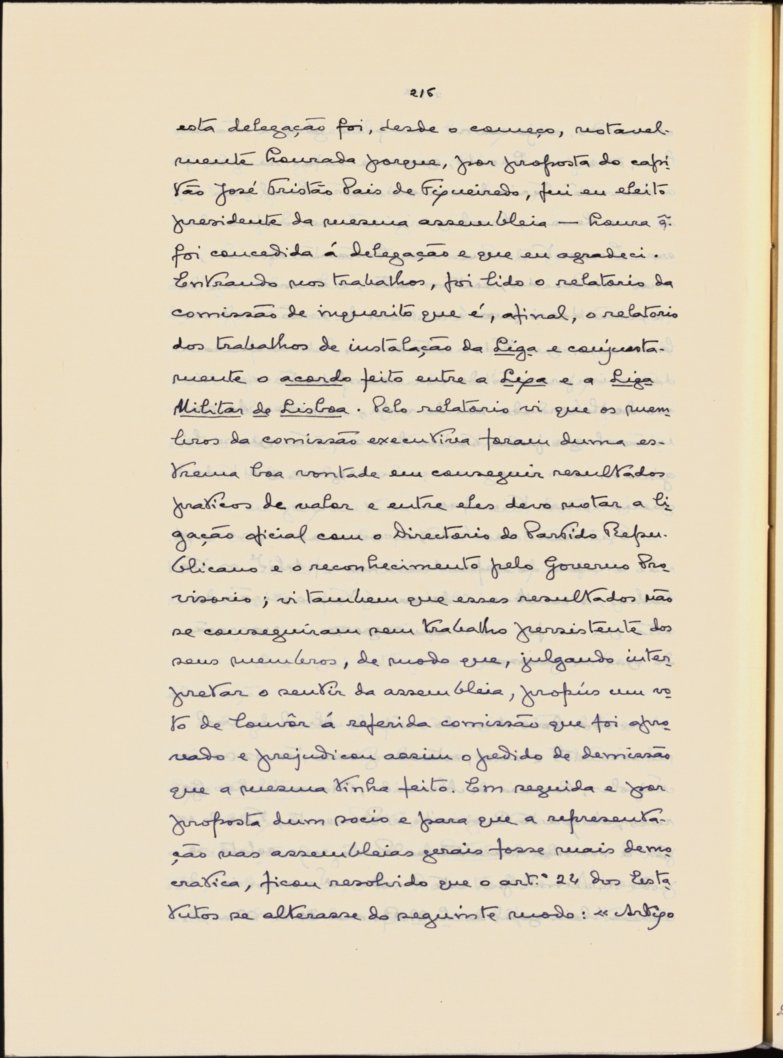 216
esta delegação foi, desde o começo, notavel-
mente honrada porque, por proposta do capi-
tão José Tristão Pais de Figueiredo, fui eu eleito
presidente da mesma assembleia — honra q̃.
foi concedida á delegação e que eu agradeci.
Entrando nos trabalhos, foi lido o relatorio da
comissão de inquerito que é, afinal, o relatorio
dos trabalhos de instalação da Liga e conjunta-
mente o acordo feito entre a Liga e a Liga
Militar de Lisboa. Pelo relatorio vi que os mem-
bros da comissão executiva foram duma es-
trema boa vontade em conseguir resultados
praticos de valor e entre eles devo notar a li-
gação oficial com o Directorio do Partido Repu-
blicano e o reconhecimento pelo Governo Pro-
visorio; vi tambem que esses resultados não
se conseguiram sem trabalho persistente dos
seus membros, de modo que, julgando inter-
pretar o sentir da assembleia, propús um vo-
to de louvôr á referida comissão que foi apro-
vado e prejudicou assim o pedido de demissão
que a mesma tinha feito. Em seguida e por
proposta dum socio e para que a representa-
ção nas assembleias gerais fosse mais demo-
cratica, ficou resolvido que o art.º 24 dos Esta-
tutos se alterasse do seguinte modo: « Artigo